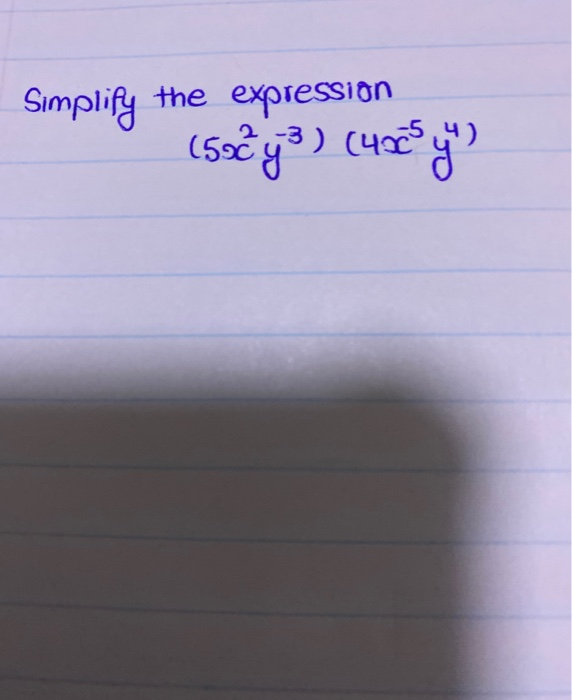 Simplify the expression
(5x²y⁻³) (4x⁻⁵y⁴)